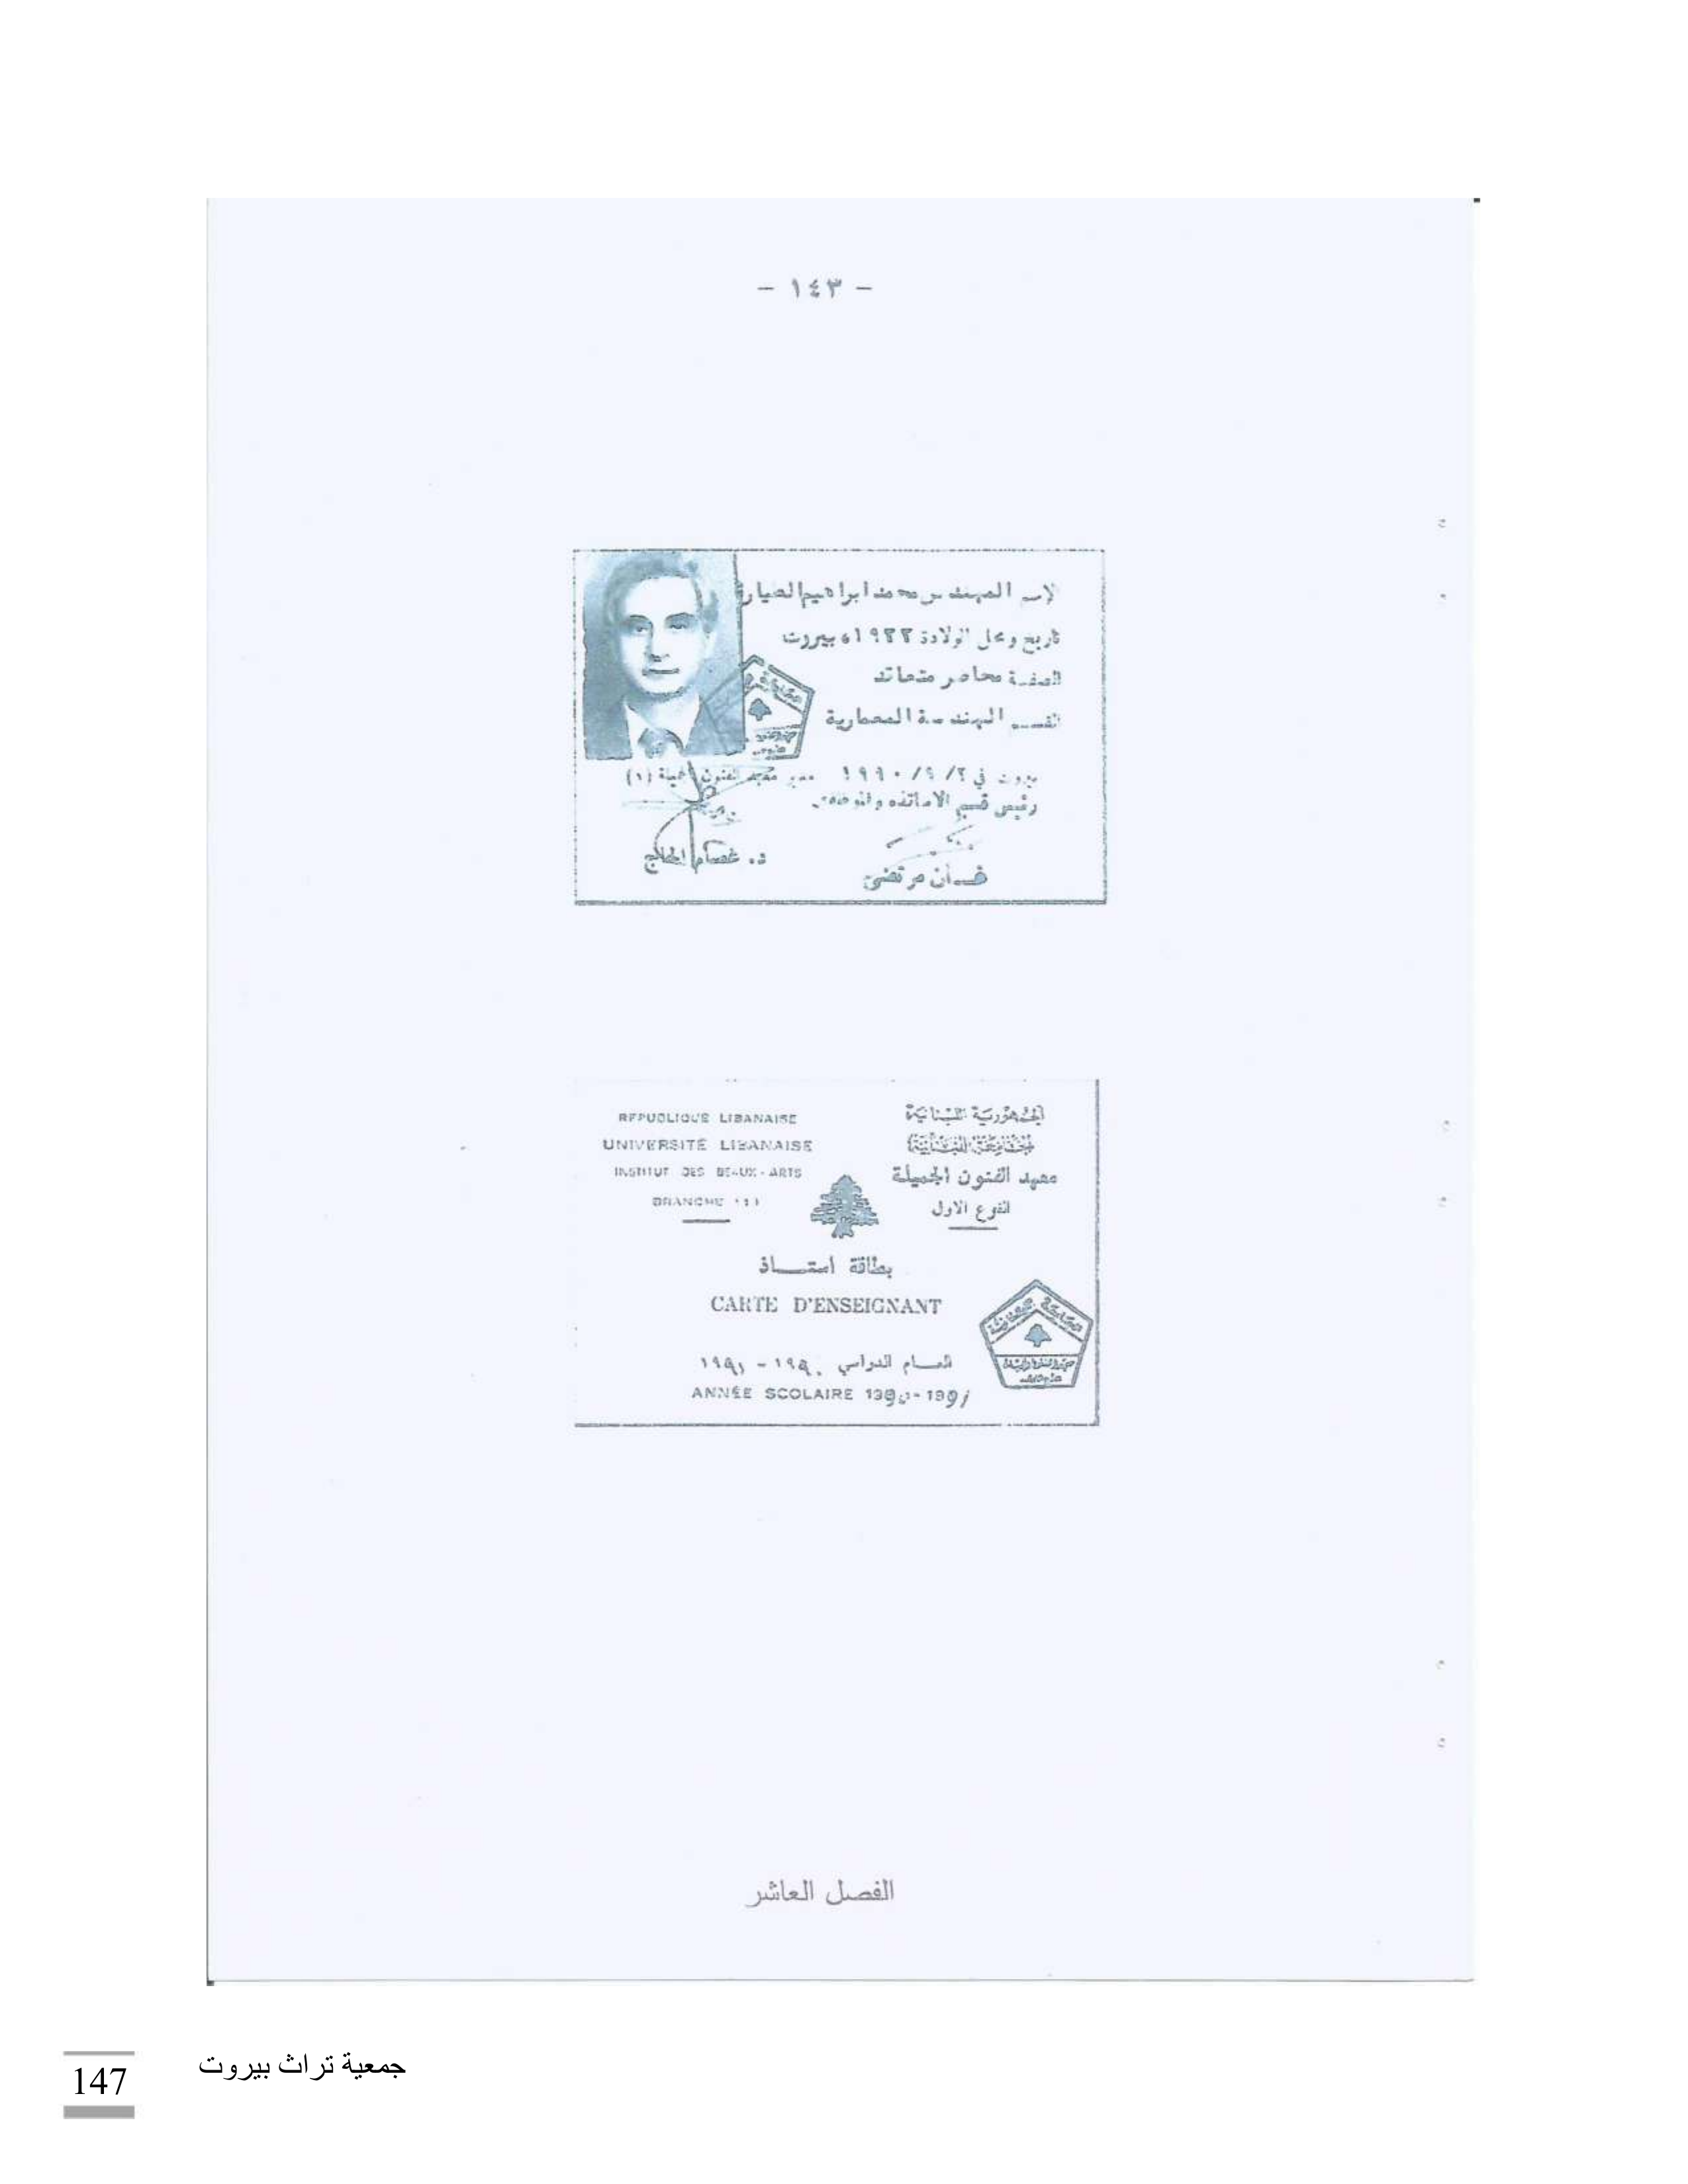 - ١٤٣ -
الاسم المهندس محمد ابراهيم الصيار
تاريخ ومحل الولادة ١٩٢٢، بيروت
الصفة محاضر متعاقد
القسم الهندسة المعمارية
بيروت في ٢/ ٩/ ١٩٩٠
مدير معهد الفنون الجميلة (١)
رئيس قسم الاساتذه والموظفين
د. عصام
مرتضى
REPUBLIQUE LIBANAISE
UNIVERSITÉ LIBANAISE
INSTITUT DES BEAUX-ARTS
BRANCHE
الجمهورية اللبنانية
الجامعة اللبنانية
معهد الفنون الجميلة
الفرع الاول
بطاقة استـــاذ
CARTE D'ENSEIGNANT
العـــام الدراسي ١٩٩٠ - ١٩٩١
ANNÉE SCOLAIRE 1990-1991
الفصل العاشر
جمعية تراث بيروت
147